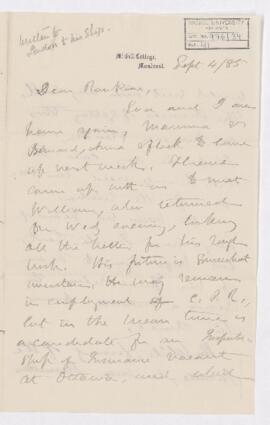 Written to
London & his Ships.
McGILL UNIVERSITY
ACC. NO. 976/24
McGill College,
Montreal.
Sept 4/85
Dear Rankine,
Eva and I are
home again, Mamma &
Bernard, Anna & flock to come
up next week.
came up with us to meet
William, who returned
on Wed evening, looking
all the better for his rough
work. His future is somewhat
uncertain. He may remain
in employment of C. P. R.,
but in the mean time is
a candidate for an Inspector
ship of Insurance vacant
at Ottawa, and which